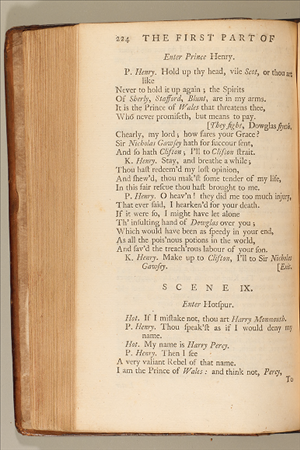 224 THE FIRST PART OF
Enter Prince Henry.
P. Henry. Hold up thy head, vile Scot, or thou art
like
Never to hold it up again; the Spirits
Of Sherly, Stafford, Blunt, are in my arms.
It is the Prince of Wales that threatens thee,
Who never promiseth, but means to pay.
[They fight, Dowglas flyeth.
Chearly, my lord; how fares your Grace?
Sir Nicholas Gawsey hath for succour sent,
And so hath Clifton; I'll to Clifton strait.
K. Henry. Stay, and breathe a while;
Thou hast redeem'd my lost opinion,
And shew'd, thou mak'st some tender of my life,
In this fair rescue thou hast brought to me.
P. Henry. O heav'n! they did me too much injury,
That ever said, I hearken'd for your death.
If it were so, I might have let alone
Th' insulting hand of Dowglas over you;
Which would have been as speedy in your end,
As all the pois'nous potions in the world,
And sav'd the treach'rous labour of your son.
K. Henry. Make up to Clifton, I'll to Sir Nicholas
Gawsey. [Exit.
SCENE IX.
Enter Hotspur.
Hot. If I mistake not, thou art Harry Monmouth.
P. Henry. Thou speak'st as if I would deny my
name.
Hot. My name is Harry Percy.
P. Henry. Then I see
A very valiant Rebel of that name.
I am the Prince of Wales: and think not, Percy,
To